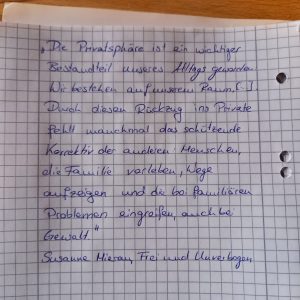 „Die Privatsphäre ist ein wichtiger
Bestandteil unseres Alltags geworden.
Wir bestehen auf unserem Raum, [...].
Durch diesen Rückzug ins Private
fehlt manchmal das schützende
Korrektiv der anderen Menschen,
die Familie vorleben, Wege
aufzeigen und die bei familiären
Problemen eingreifen, auch bei
Gewalt."
Susanne Mierau, Frei und Unverbogen